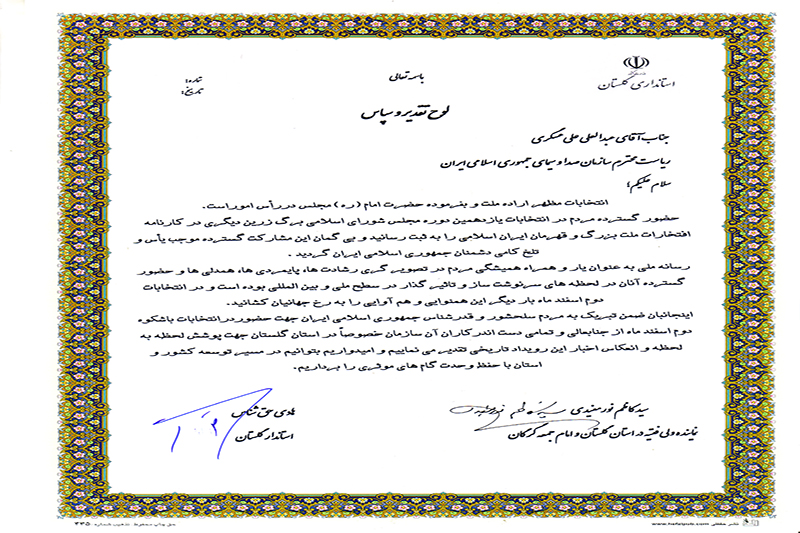 باسمه تعالی
استانداری گلستان
شماره:
تاریخ:
لوح تقدیر و سپاس
جناب آقای عبدالعلی علی عسکری
ریاست محترم سازمان صدا و سیمای جمهوری اسلامی ایران
سلام علیکم؛
انتخابات مظهر اراده ملت و بفرموده حضرت امام (ره) مجلس در رأس امور است.
حضور گسترده مردم در انتخابات یازدهمین دوره مجلس شورای اسلامی برگ زرین دیگری در کارنامه
افتخارات ملت بزرگ و قهرمان ایران اسلامی را به ثبت رسانید و بی گمان این مشارکت گسترده موجب یأس و
تلخ کامی دشمنان جمهوری اسلامی ایران گردید .
رسانه ملی به عنوان یار و همراه همیشگی مردم در تصویر گری رشادت ها، پایمردی ها، همدلی ها و حضور
گسترده آنان در لحظه های سرنوشت ساز و تاثیر گذار در سطح ملی و بین المللی بوده است و در انتخابات
دوم اسفند ماه بار دیگر این همنوایی و هم آوایی را به رخ جهانیان کشانید.
اینجانبان ضمن تبریک به مردم سلحشور و قدرشناس جمهوری اسلامی ایران جهت حضور در انتخابات باشکوه
دوم اسفند ماه از جنابعالی و تمامی دست اندرکاران آن سازمان خصوصاً در استان گلستان جهت پوشش لحظه به
لحظه و انعکاس اخبار این رویداد تاریخی تقدیر می نماییم و امیدواریم بتوانیم در مسیر توسعه کشور و
استان با حفظ وحدت گام های موثری را برداریم.
سید کاظم نورمفیدی
نماینده ولی فقیه در استان گلستان و امام جمعه گرگان
هادی حق شناس
استاندار گلستان
نشر حافظ www.hafezpub.com
حق چاپ محفوظ تذهیب شماره ۲۳۵